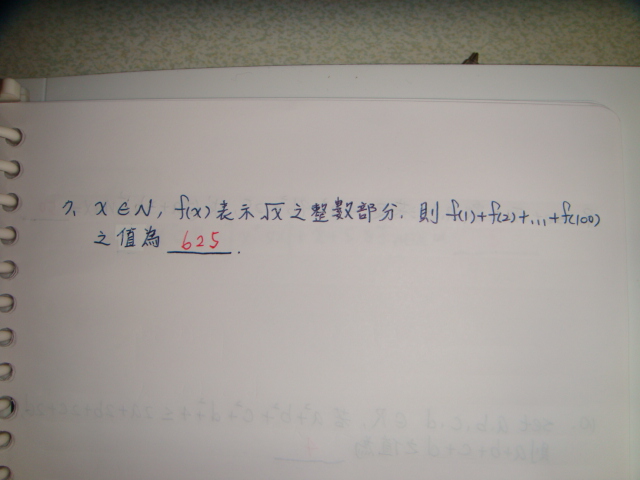 7、x∈N，f(x)表示√x之整數部分．則f(1)+f(2)+...+f(100)
之值為 625 .